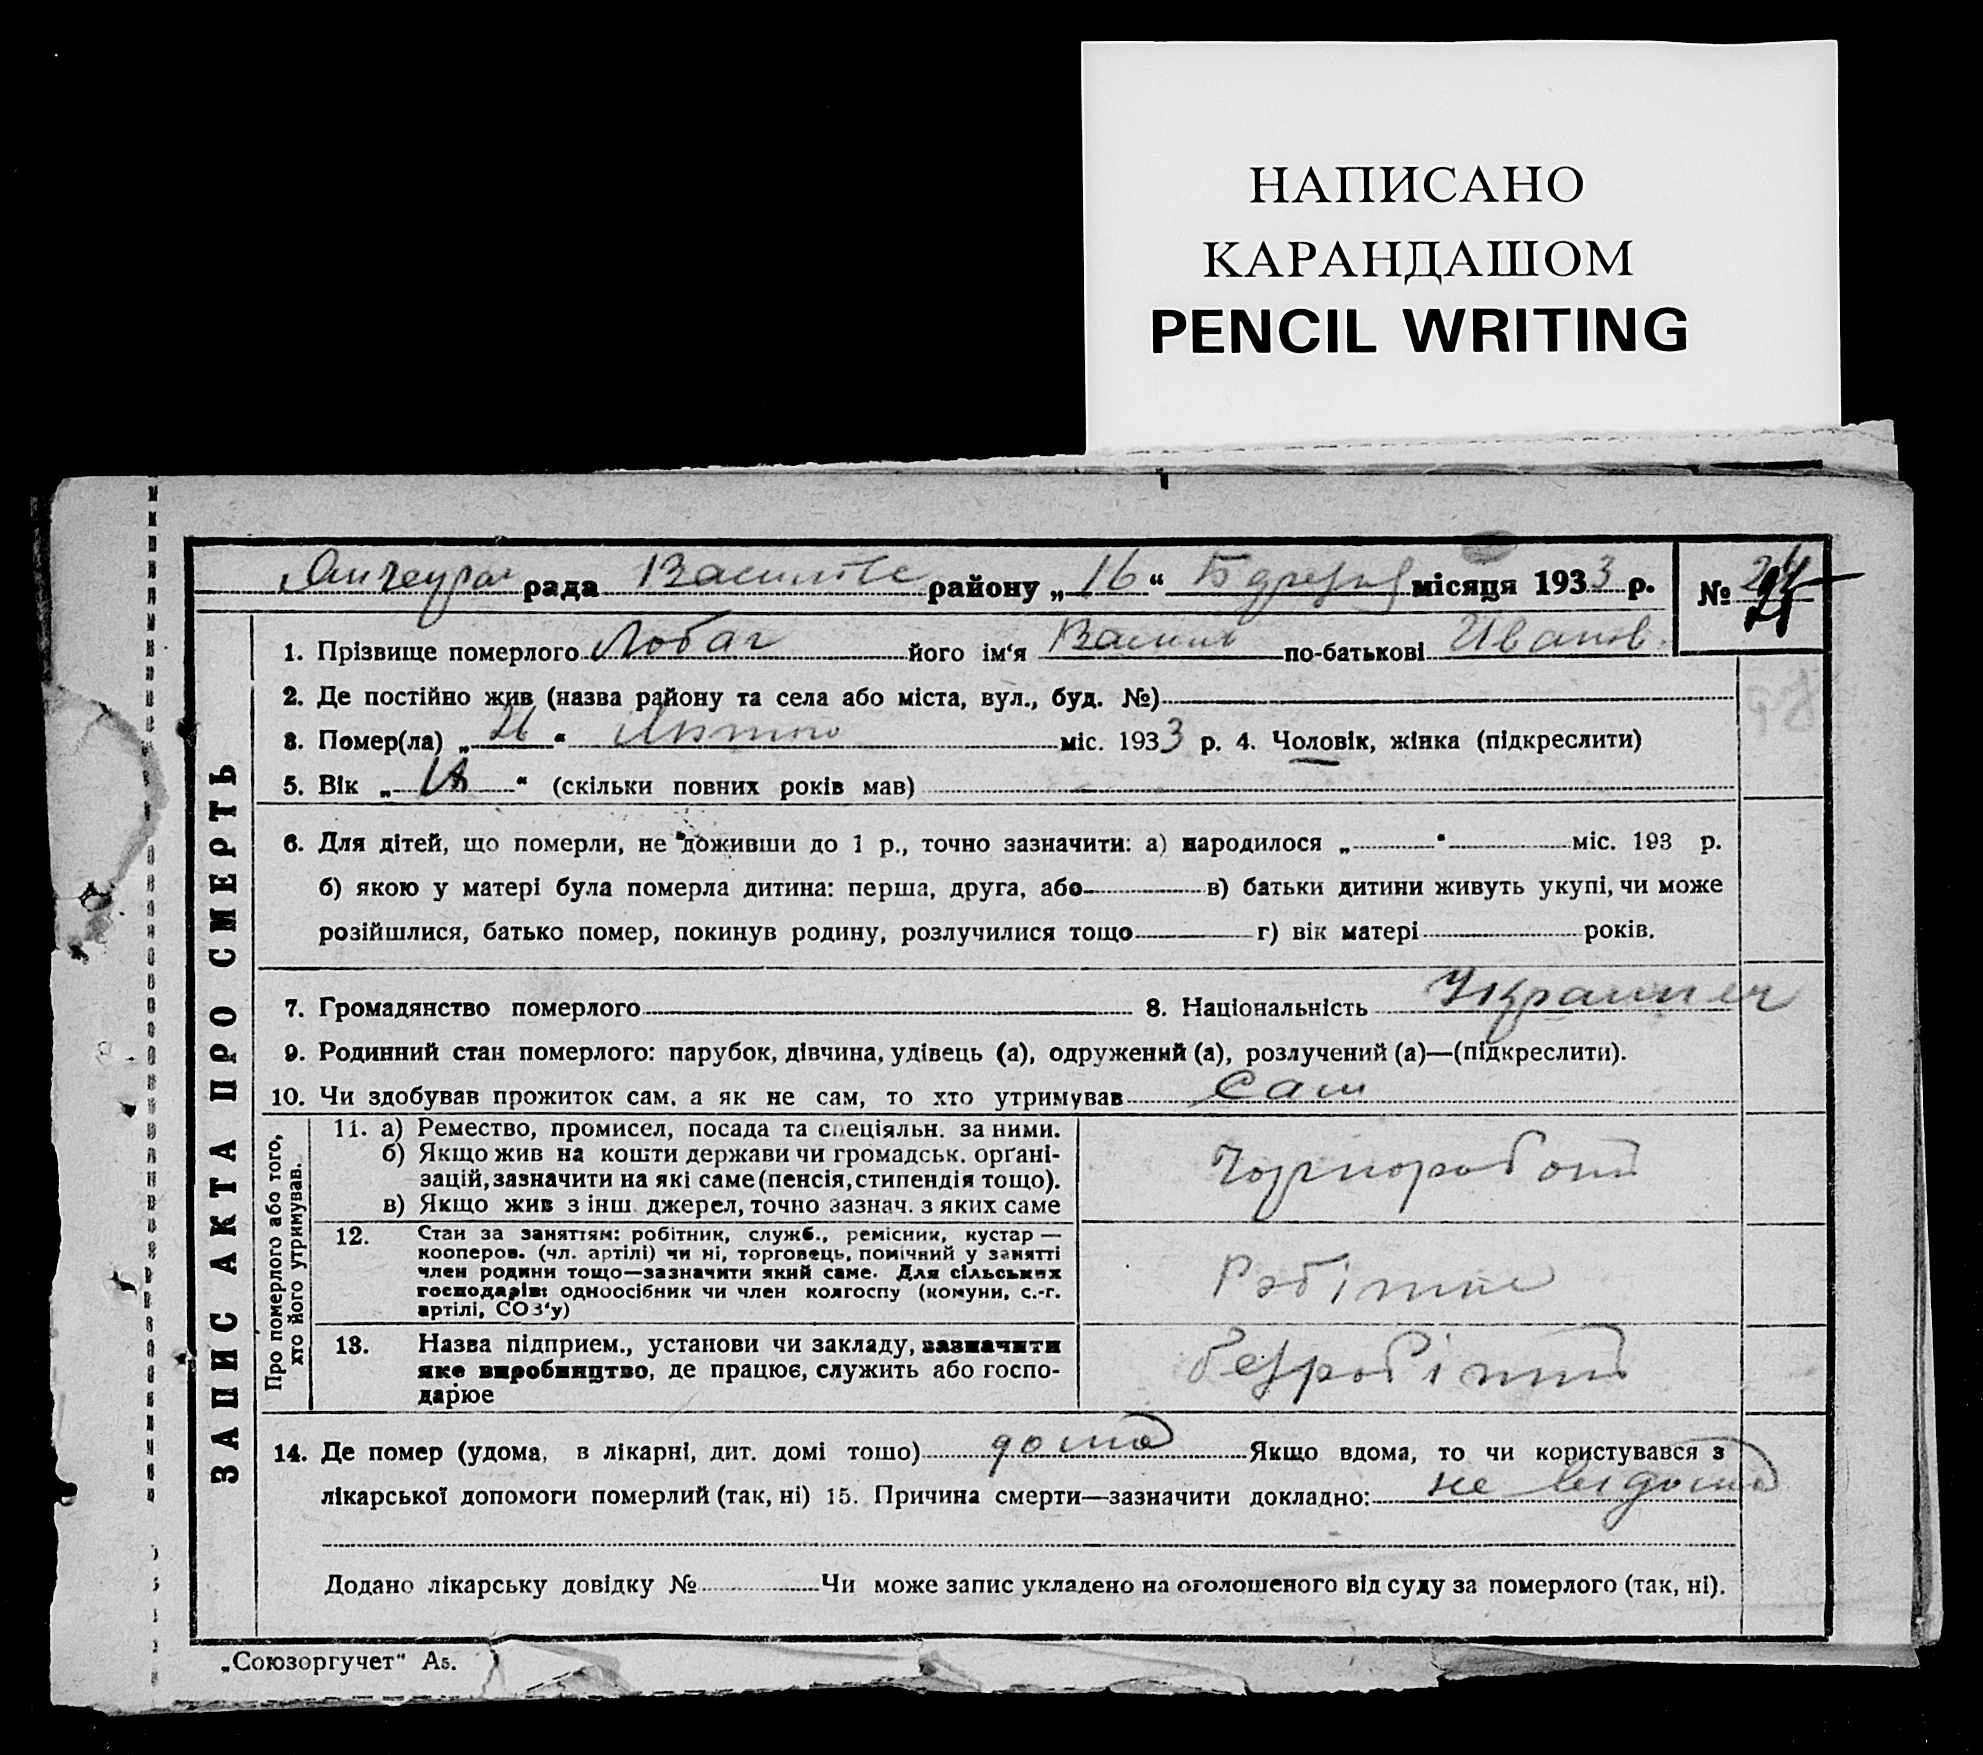 НАПИСАНО
КАРАНДАШОМ
PENCIL WRITING
рада Васильк району „16“ Березня місяця 1933 р. № 24
1. Прізвище померлого Лобач його ім‘я Василь по-батькові Иванов.
2. Де постійно жив (назва району та села або міста, вул., буд. №)
3. Помер(ла) „21“ Лютого міс. 1933 р. 4. Чоловік, жінка (підкреслити)
5. Вік „18“ (скільки повних років мав)
6. Для дітей, що померли, не доживши до 1 р., точно зазначити: а) народилося „ “ міс. 193 р.
б) якою у матері була померла дитина: перша, друга, або в) батьки дитини живуть укупі, чи може
розійшлися, батько помер, покинув родину, розлучилися тощо г) вік матері років.
7. Громадянство померлого 8. Національність Украинец
9. Родинний стан померлого: парубок, дівчина, удівець (а), одружений (а), розлучений (а)—(підкреслити).
10. Чи здобував прожиток сам, а як не сам, то хто утримував сам
Про померлого або того,
хто його утримував.
11. а) Ремество, промисел, посада та спеціяльн. за ними.
б) Якщо жив на кошти держави чи громадськ. орґані-
зацій, зазначити на які саме (пенсія, стипендія тощо).
в) Якщо жив з інш. джерел, точно зазнач. з яких саме
Чорноробочий
12. Стан за заняттям: робітник, служб., ремісник, кустар —
кооперов. (чл. артілі) чи ні, торговець, помічний у занятті
член родини тощо—зазначити який саме. Для сільських
господарів: одноосібник чи член колгоспу (комуни, с.-г.
артілі, СОЗ‘у)
Робітник
13. Назва підприєм., установи чи закладу, зазначити
яке виробництво, де працює, служить або госпо-
дарює
безробітний
14. Де помер (удома, в лікарні, дит. домі тощо) дома Якщо вдома, то чи користувався з
лікарської допомоги померлий (так, ні) 15. Причина смерти—зазначити докладно: не видома
Додано лікарську довідку № Чи може запис укладено на оголошеного від суду за померлого (так, ні).
ЗАПИС АКТА ПРО СМЕРТЬ
„Союзоргучет“ А5.